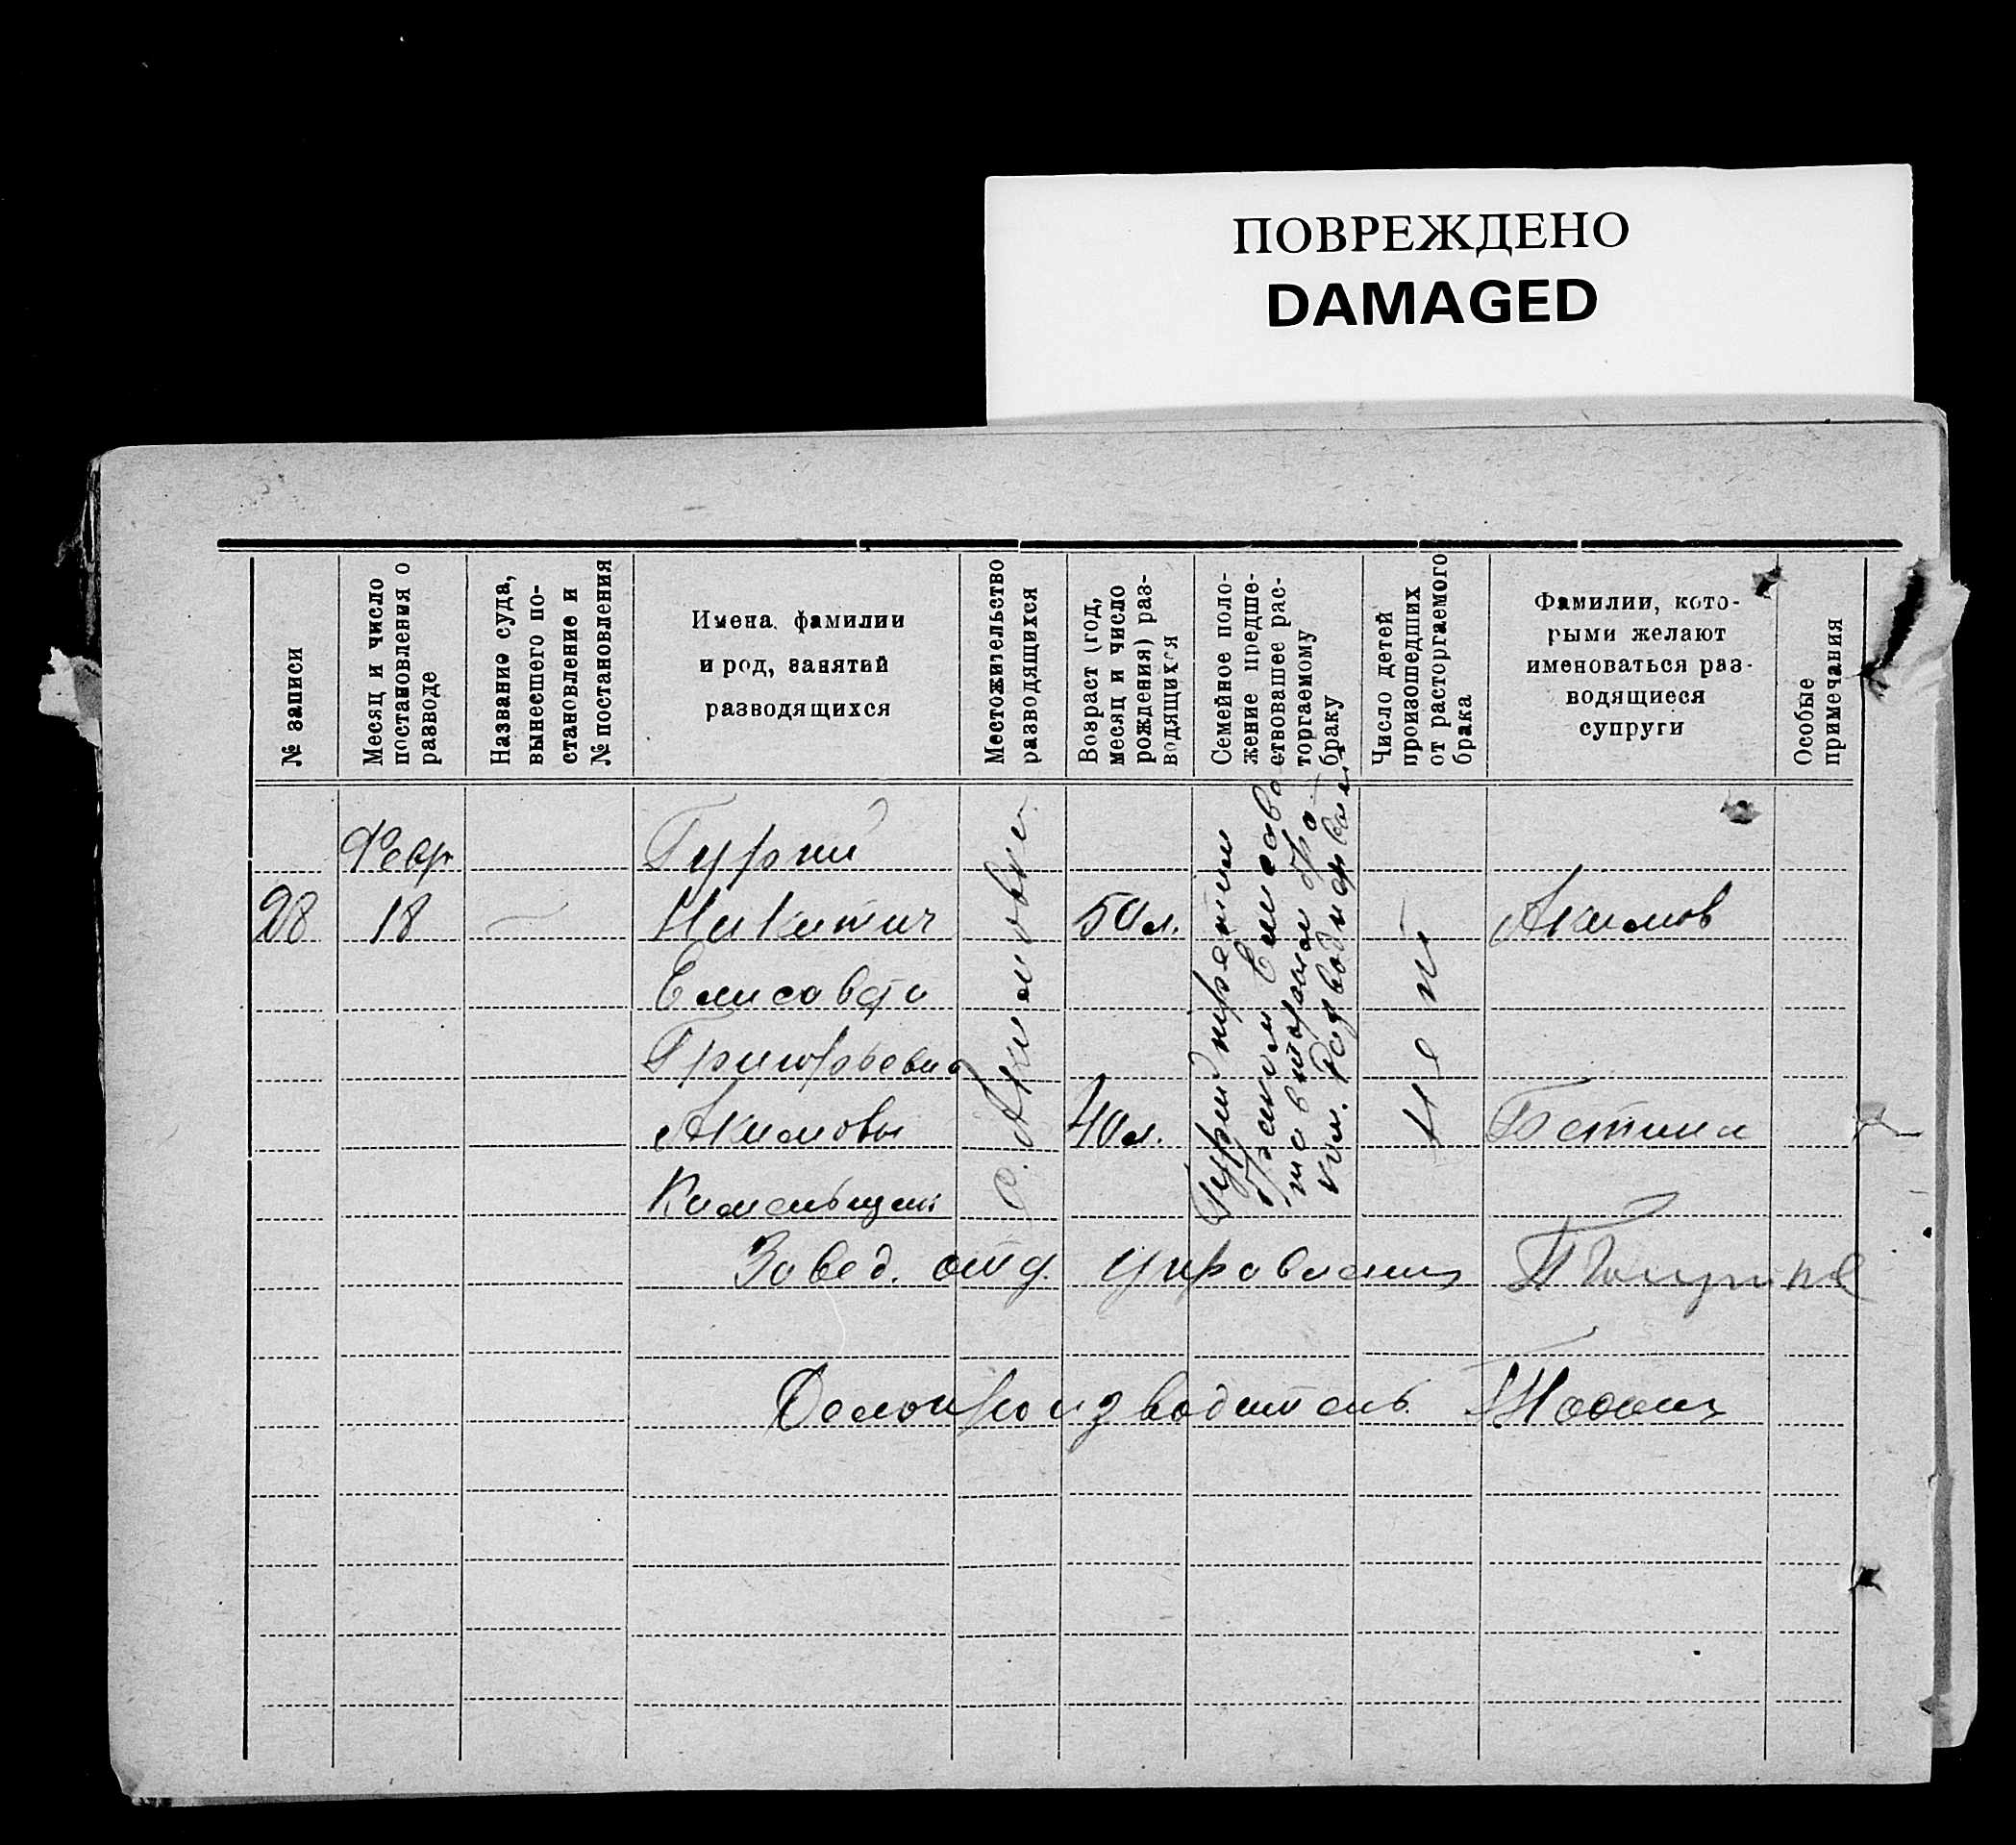 ПОВРЕЖДЕНО
DAMAGED
№ записи
Месяц и число
постановления о
разводе
Название суда,
вынесшего по-
становление и
№ постановления
Имена, фамилии
и род, занятий
разводящихся
Местожительство
разводящихся
Возраст (год,
месяц и число
рождения) раз-
водящихся
Семейное поло-
жение предше-
ствовавшее рас-
торгаемому
браку
Число детей
происшедших
от расторгаемого
брака
Фамилии, кото-
рыми желают
именоваться раз-
водящиеся
супруги
Особые
примечания
Февр
28
18
—
Гурий
Никитич
Елисавета
Григорьевна
Акимовы
с. Акимовки
50 л.
40 л.
Гурий третьим
браком Елисаве
та вторым бра
ком.
Нет
Акимов
Завед. отд. управления
Делопроизводитель